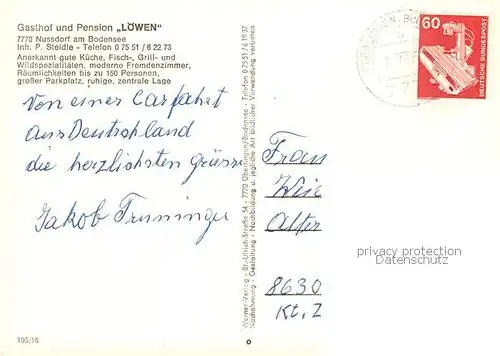 Gasthof und Pension „LÖWEN"
7770 Nussdorf am Bodensee
Inh. P. Steidle - Telefon 0 75 51 / 6 22 73
Anerkannt gute Küche, Fisch-, Grill- und
Wildspezialitäten, moderne Fremdenzimmer,
Räumlichkeiten bis zu 150 Personen,
großer Parkplatz, ruhige, zentrale Lage
Von einer Carfahrt
aus Deutschland
die herzlichsten Grüsse
Jakob Truninger
195/16
Werner-Verlag - St.-Ulrich-Straße 54 - 7770 Überlingen/Bodensee - Telefon 0 75 51 / 6 19 37
Nachahmung - Gestaltung - Nachbildung u. jegliche Art bildlicher Verwendung verboten
60
DEUTSCHE BUNDESPOST
Frau
Alter
8630
Kt. Z
privacy protection
Datenschutz